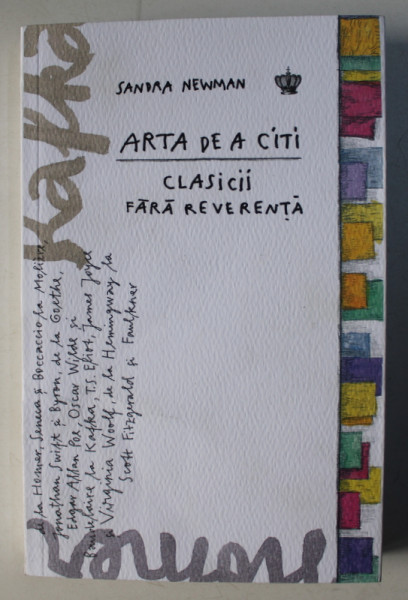 SANDRA NEWMAN
ARTA DE A CITI
CLASICII
FĂRĂ REVERENȚĂ
Kafka
de la Homer, Seneca și Boccaccio la Molière,
Jonathan Swift și Byron, de la Goethe,
Edgar Allan Poe, Oscar Wilde și
Baudelaire la Kafka, T.S. Eliot, James Joyce
și Virginia Woolf, de la Hemingway la
Scott Fitzgerald și Faulkner